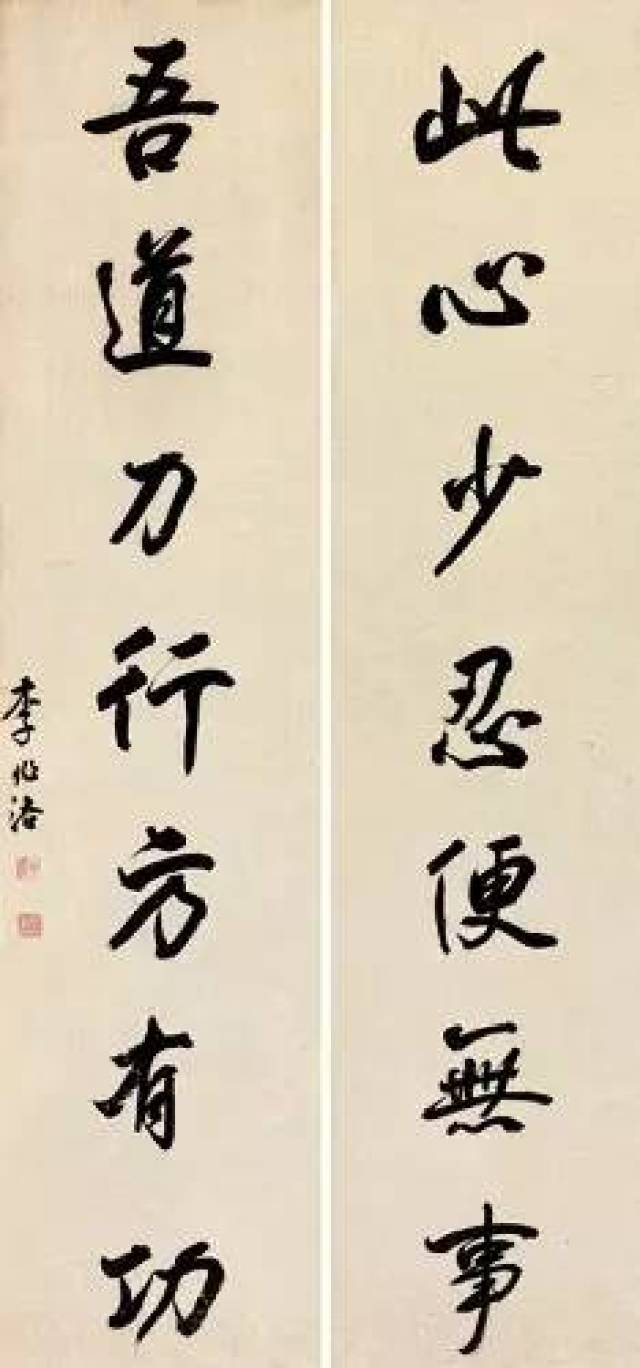 此心少忍便無事
吾道力行方有功
李兆洛